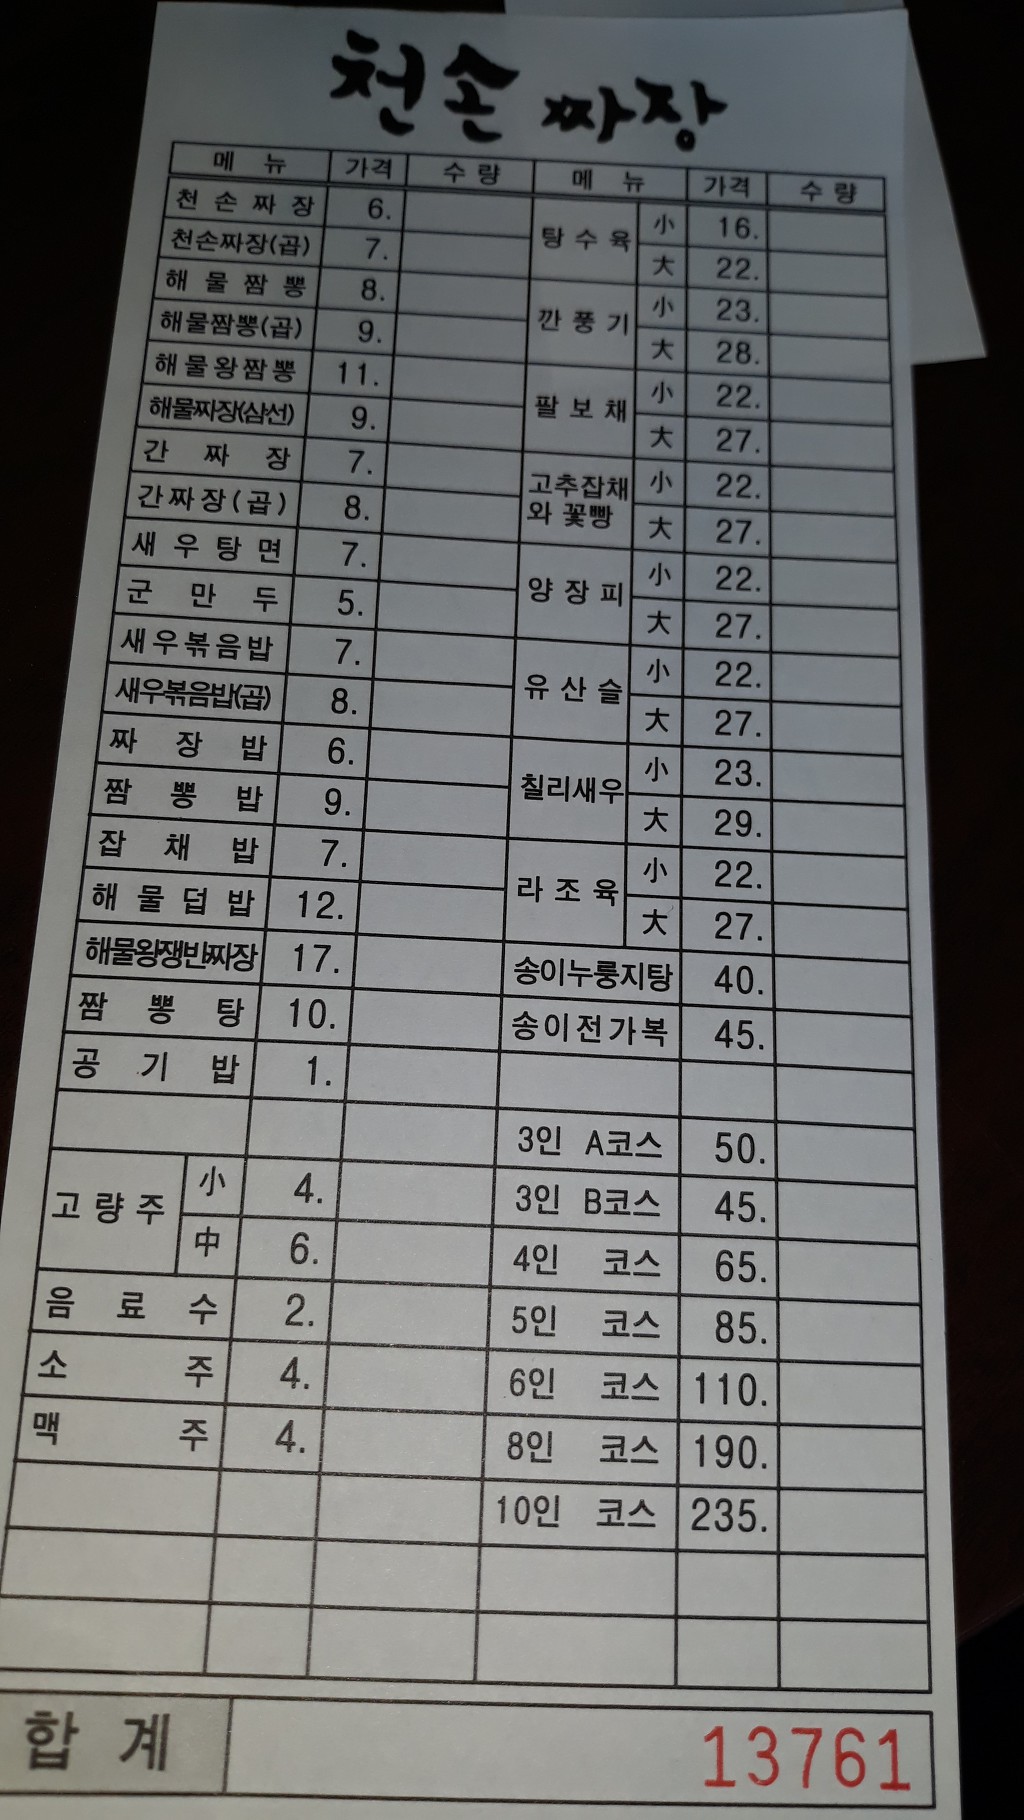 천손 짜장
메 뉴 가격 수 량 메 뉴 가격 수 량
천 손 짜 장 6.
천손짜장(곱) 7.
해 물 짬 뽕 8.
해물짬뽕(곱) 9.
해물왕짬뽕 11.
해물짜장(삼선) 9.
간 짜 장 7.
간짜장(곱) 8.
새 우 탕 면 7.
군 만 두 5.
새우볶음밥 7.
새우볶음밥(곱) 8.
짜 장 밥 6.
짬 뽕 밥 9.
잡 채 밥 7.
해 물 덥 밥 12.
해물왕쟁반짜장 17.
짬 뽕 탕 10.
공 기 밥 1.
고 량 주 小 4.
中 6.
음 료 수 2.
소 주 4.
맥 주 4.
탕 수 육 小 16.
大 22.
깐 풍 기 小 23.
大 28.
팔 보 채 小 22.
大 27.
고추잡채
와 꽃빵 小 22.
大 27.
양 장 피 小 22.
大 27.
유 산 슬 小 22.
大 27.
칠리새우 小 23.
大 29.
라 조 육 小 22.
大 27.
송이누룽지탕 40.
송이전가복 45.
3인 A코스 50.
3인 B코스 45.
4인 코스 65.
5인 코스 85.
6인 코스 110.
8인 코스 190.
10인 코스 235.
합 계 13761